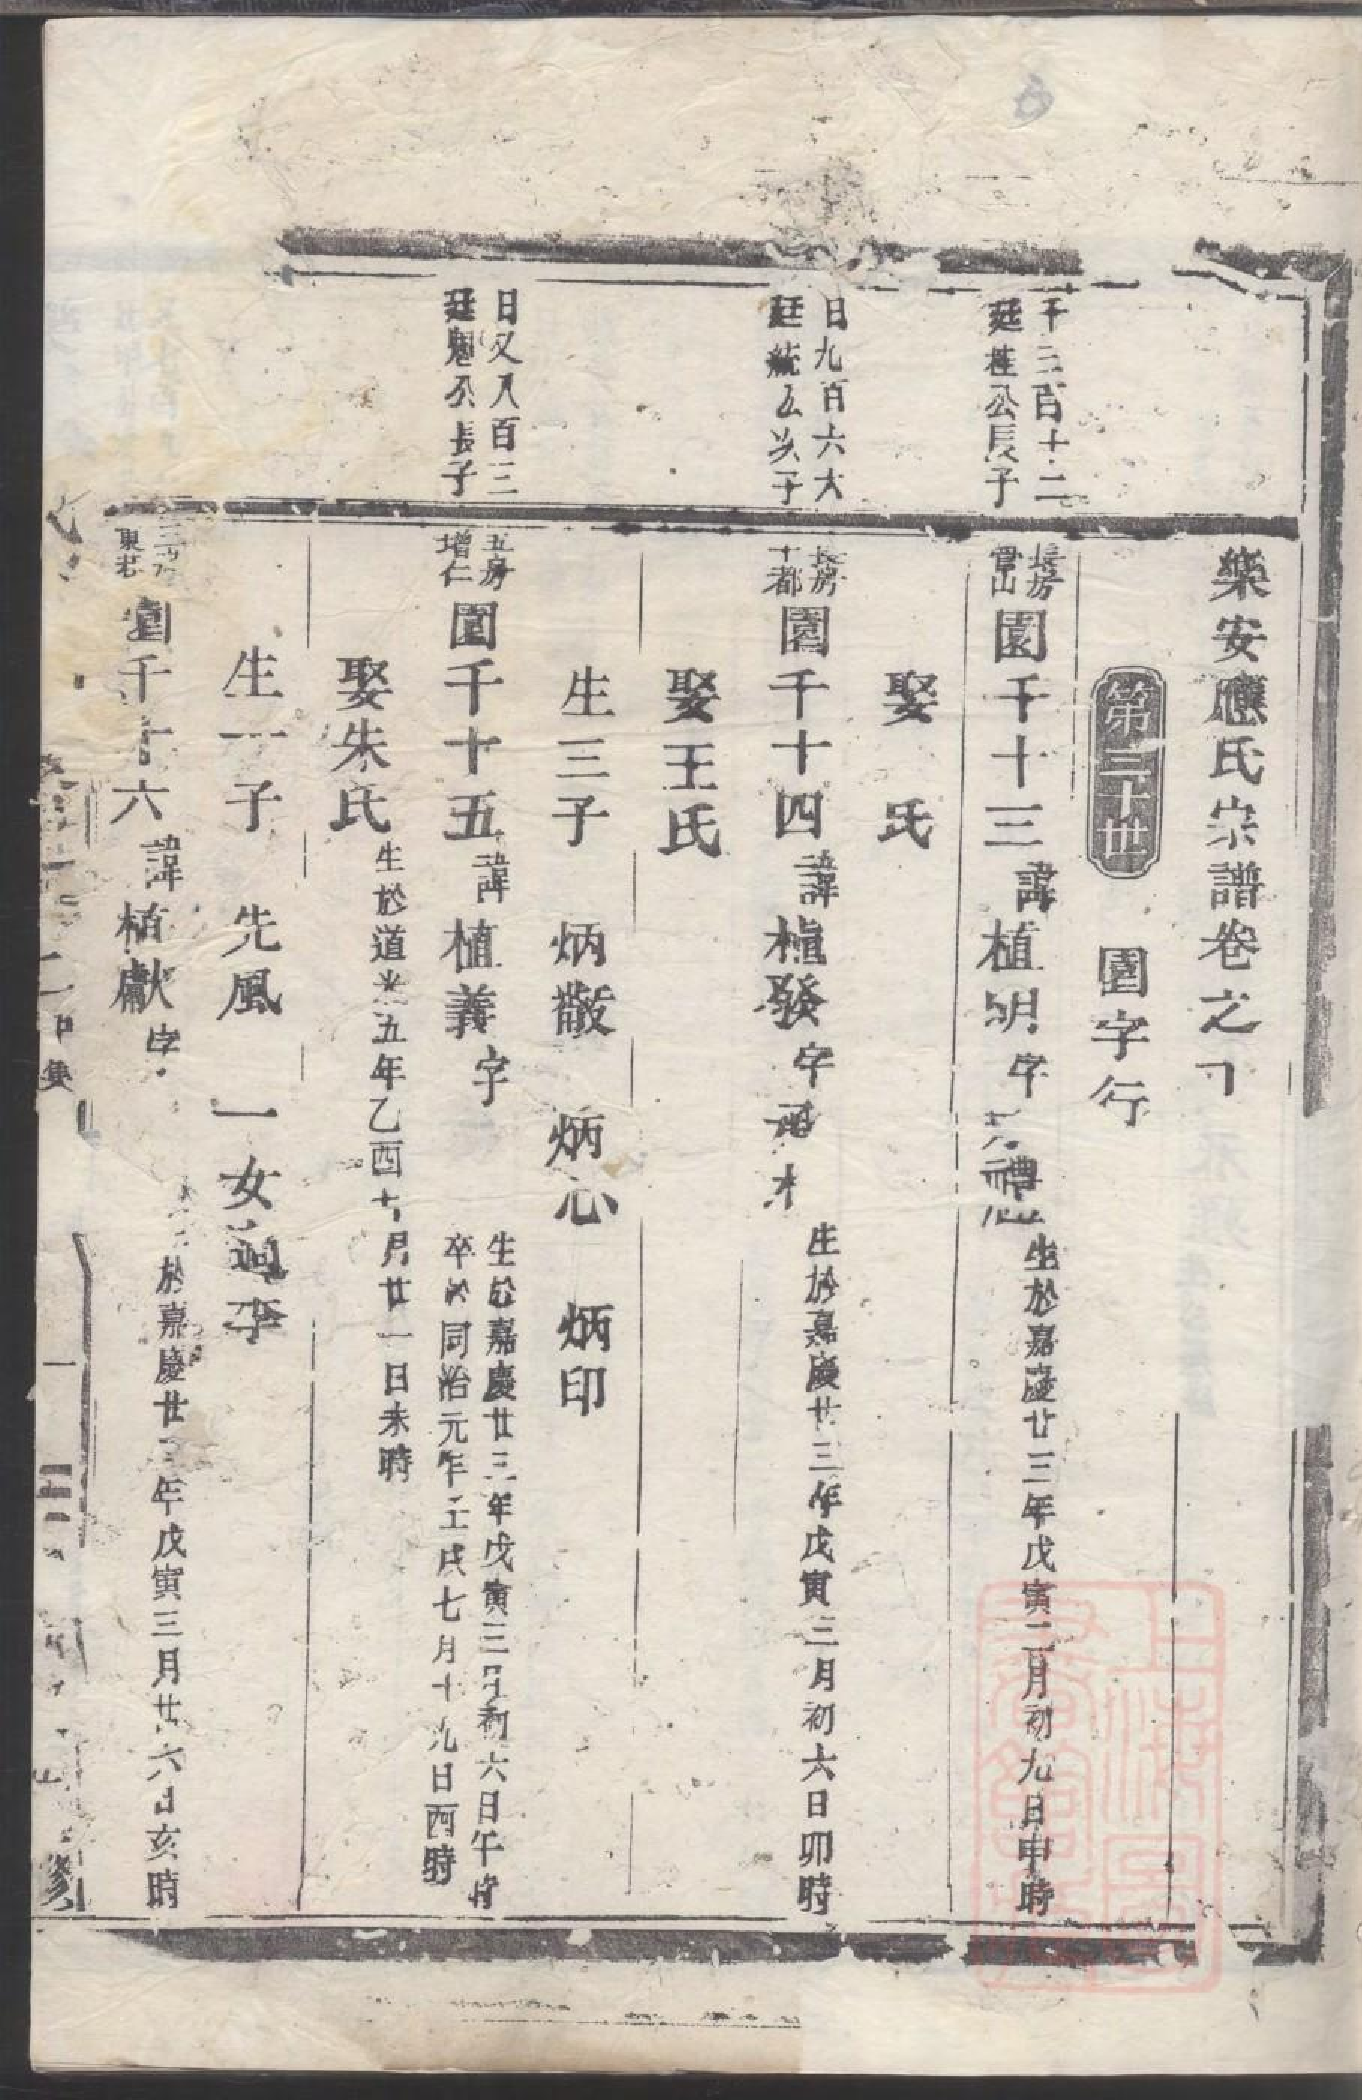 樂安應氏宗譜卷之
第三十世
園字行
千三百十二
廷桂公長子
長房
官山
園千十三
諱
植明
字
禮
生於嘉慶廿三年戊寅二月初九日申時
娶 氏
日九百六大
廷統公次子
長房
十都
園千十四
諱
植發
字
生於嘉慶廿三年戊寅三月初六日卯時
娶王氏
生三子 炳散 炳心 炳印
日又八百三
廷魁公長子
五房
增仁
園千十五
諱
植義
字
生於嘉慶廿三年戊寅三月初六日午時
卒於同治元年壬戌七月十九日酉時
娶朱氏
生於道光五年乙酉七月廿一日未時
生一子 先風 一女適李
東莊
園千十六
諱
植獻
字
於嘉慶廿 年戊寅三月廿六日亥時
上海圖書館藏